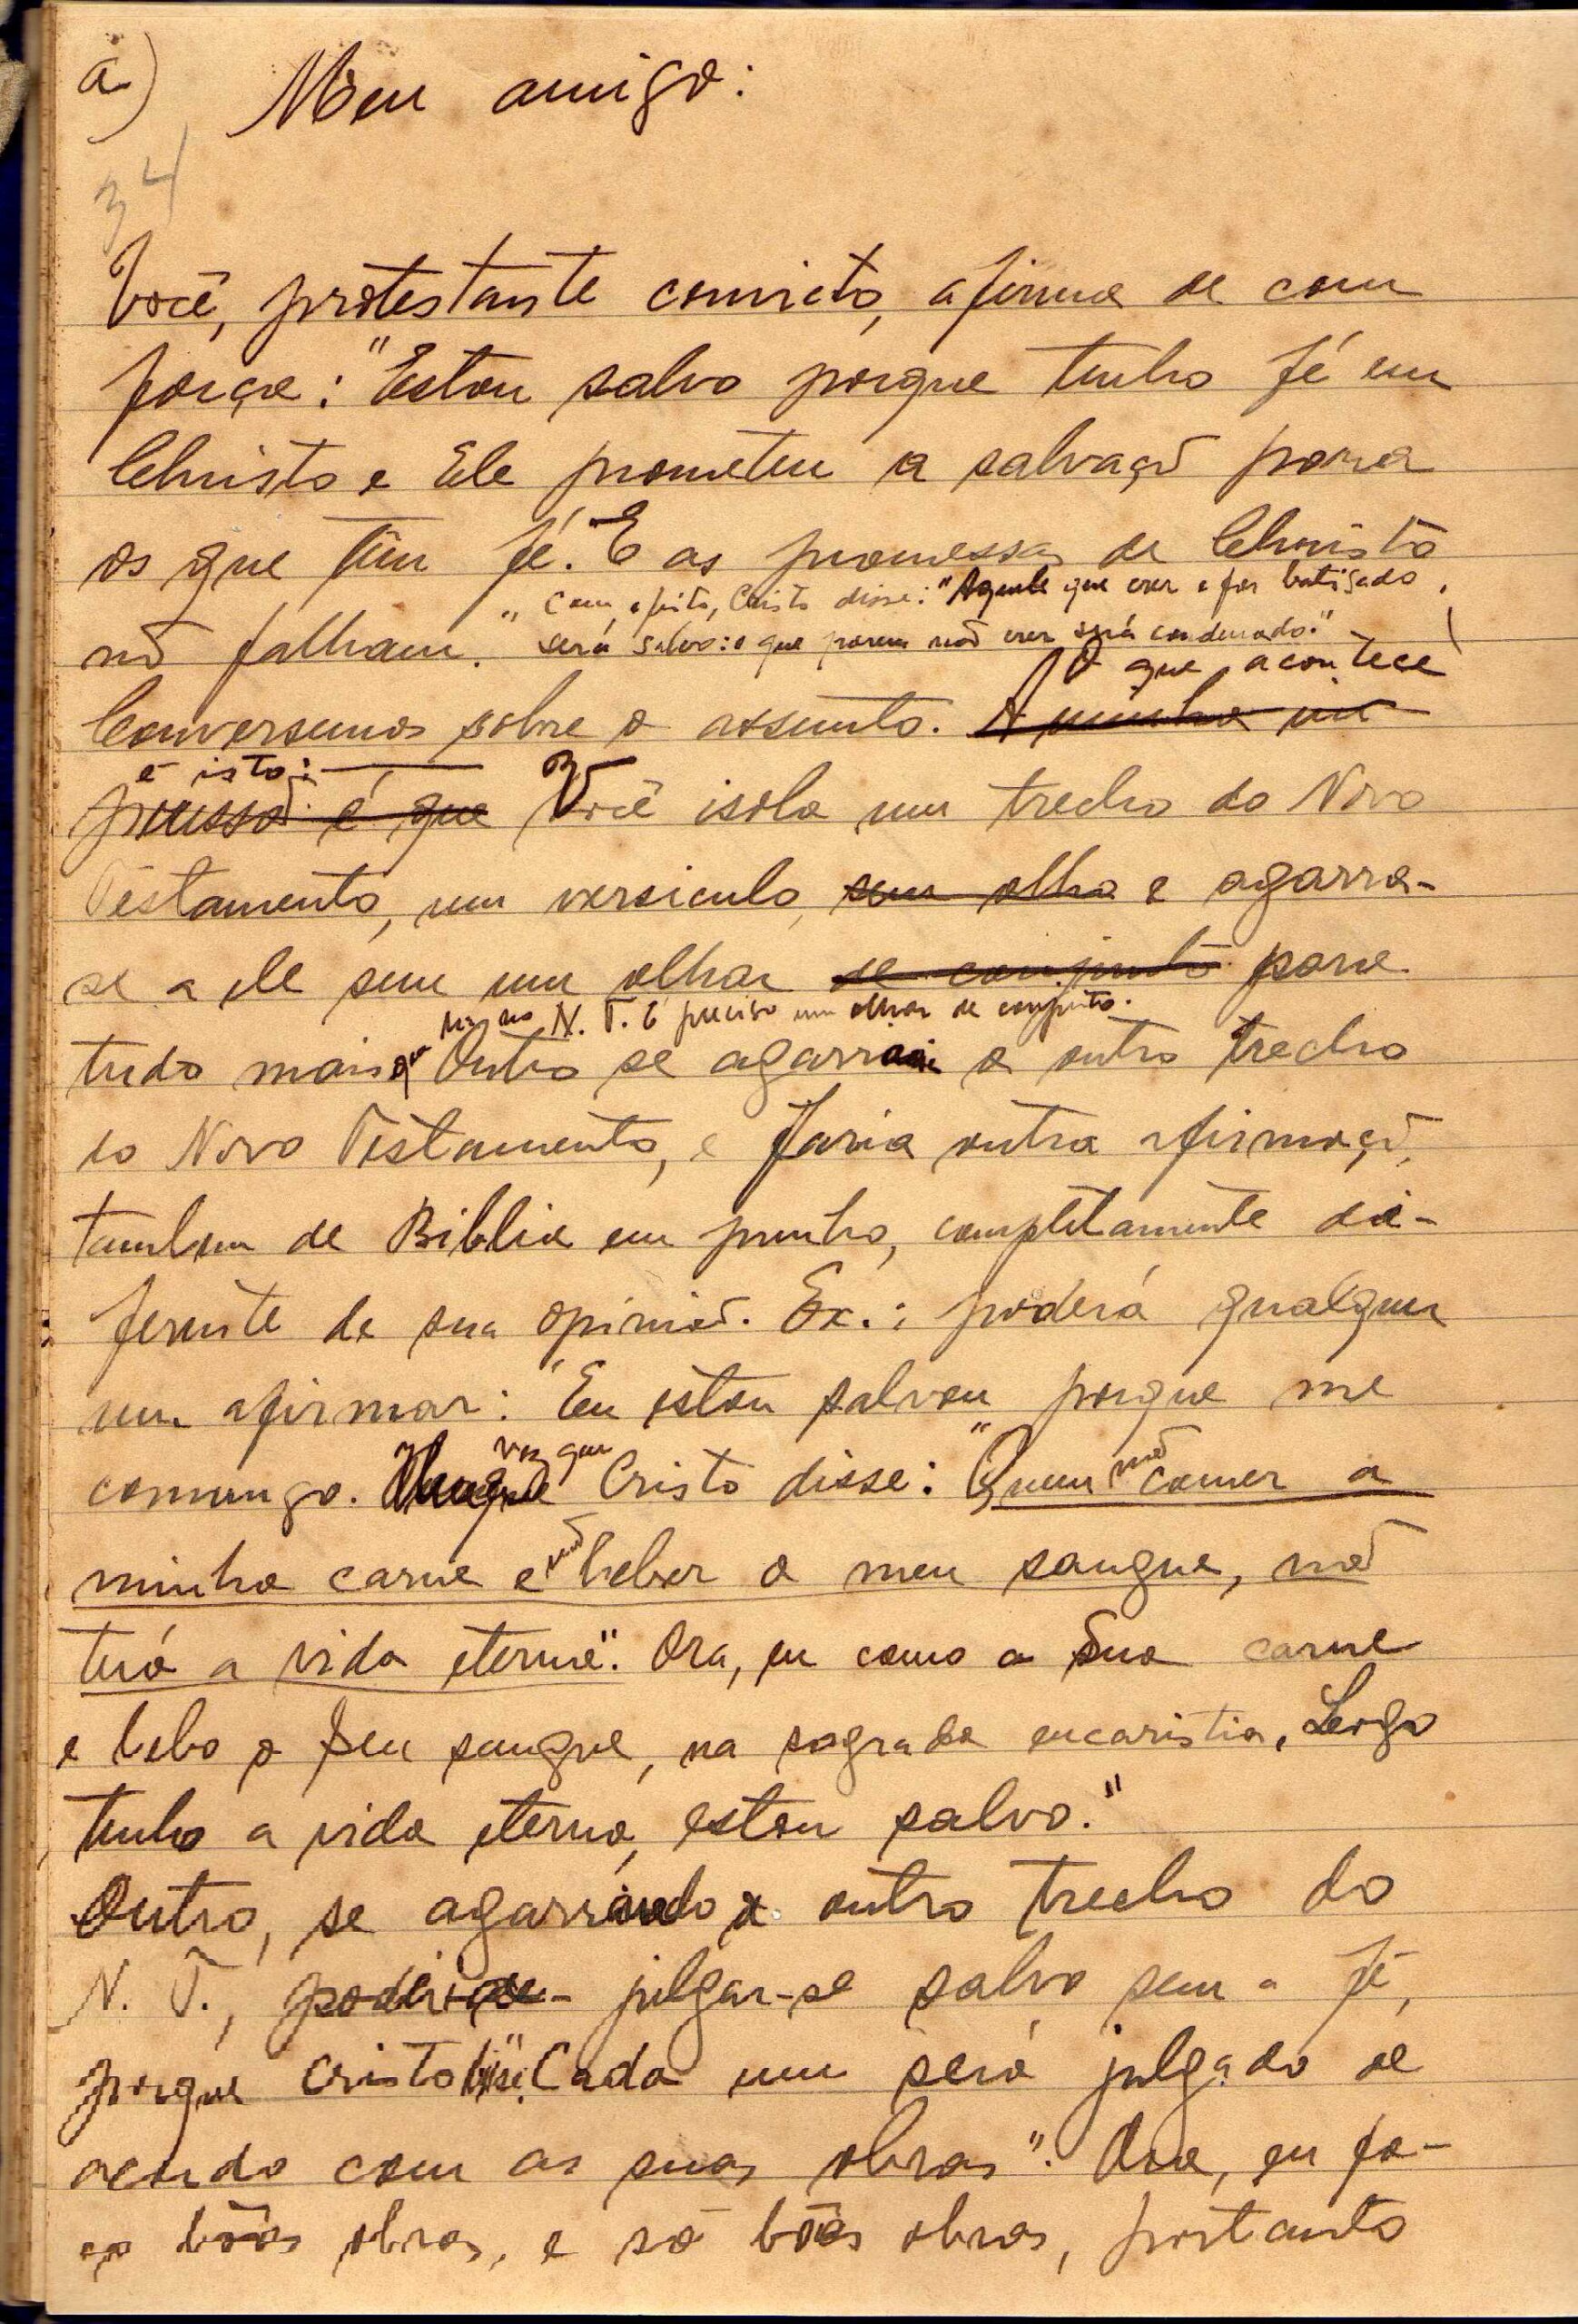 a)
Meu amigo:
34
Você, protestante convicto, afirma de com
força: "Estou salvo porque tenho fé em
Christo e Ele prometeu a salvação para
os que têm fé. E as promessas de Christo
"Com efeito, Cristo disse: "Aquele que crer e for batisado,
não falham."
será salvo: o que porem não crer será condenado."
O que acontece
Conversemos sobre o assunto. A minha im
é isto:
pressão é que Você isola um trecho do Novo
Testamento, um versiculo, sem olha e agarra-
se a ele sem um olhar de conjunto para
N. T. É preciso um olhar de conjunto.
tudo mais que Outro se agarra a outro trecho
do Novo Testamento, e faria outra afirmação,
tambem de Biblia em punho, completamente di-
ferente da sua opinião. Ex.: poderá qualquer
um afirmar: "Eu estou salvou porque me
vez que
comungo. Cristo disse: "Quem não comer a
minha carne e não beber o meu sangue, não
terá a vida eterna". Ora, eu como a Sua carne
e bebo o Seu sangue, na sagrada eucaristia, Logo
tenho a vida eterna, estou salvo."
Outro, se agarrando a outro trecho do
N. T., poderia julgar-se salvo sem a fé,
porque Cristo disse: "Cada um será julgado de
acordo com as suas obras". Ora, eu fa-
ço bôas obras, e só bôas obras, portanto